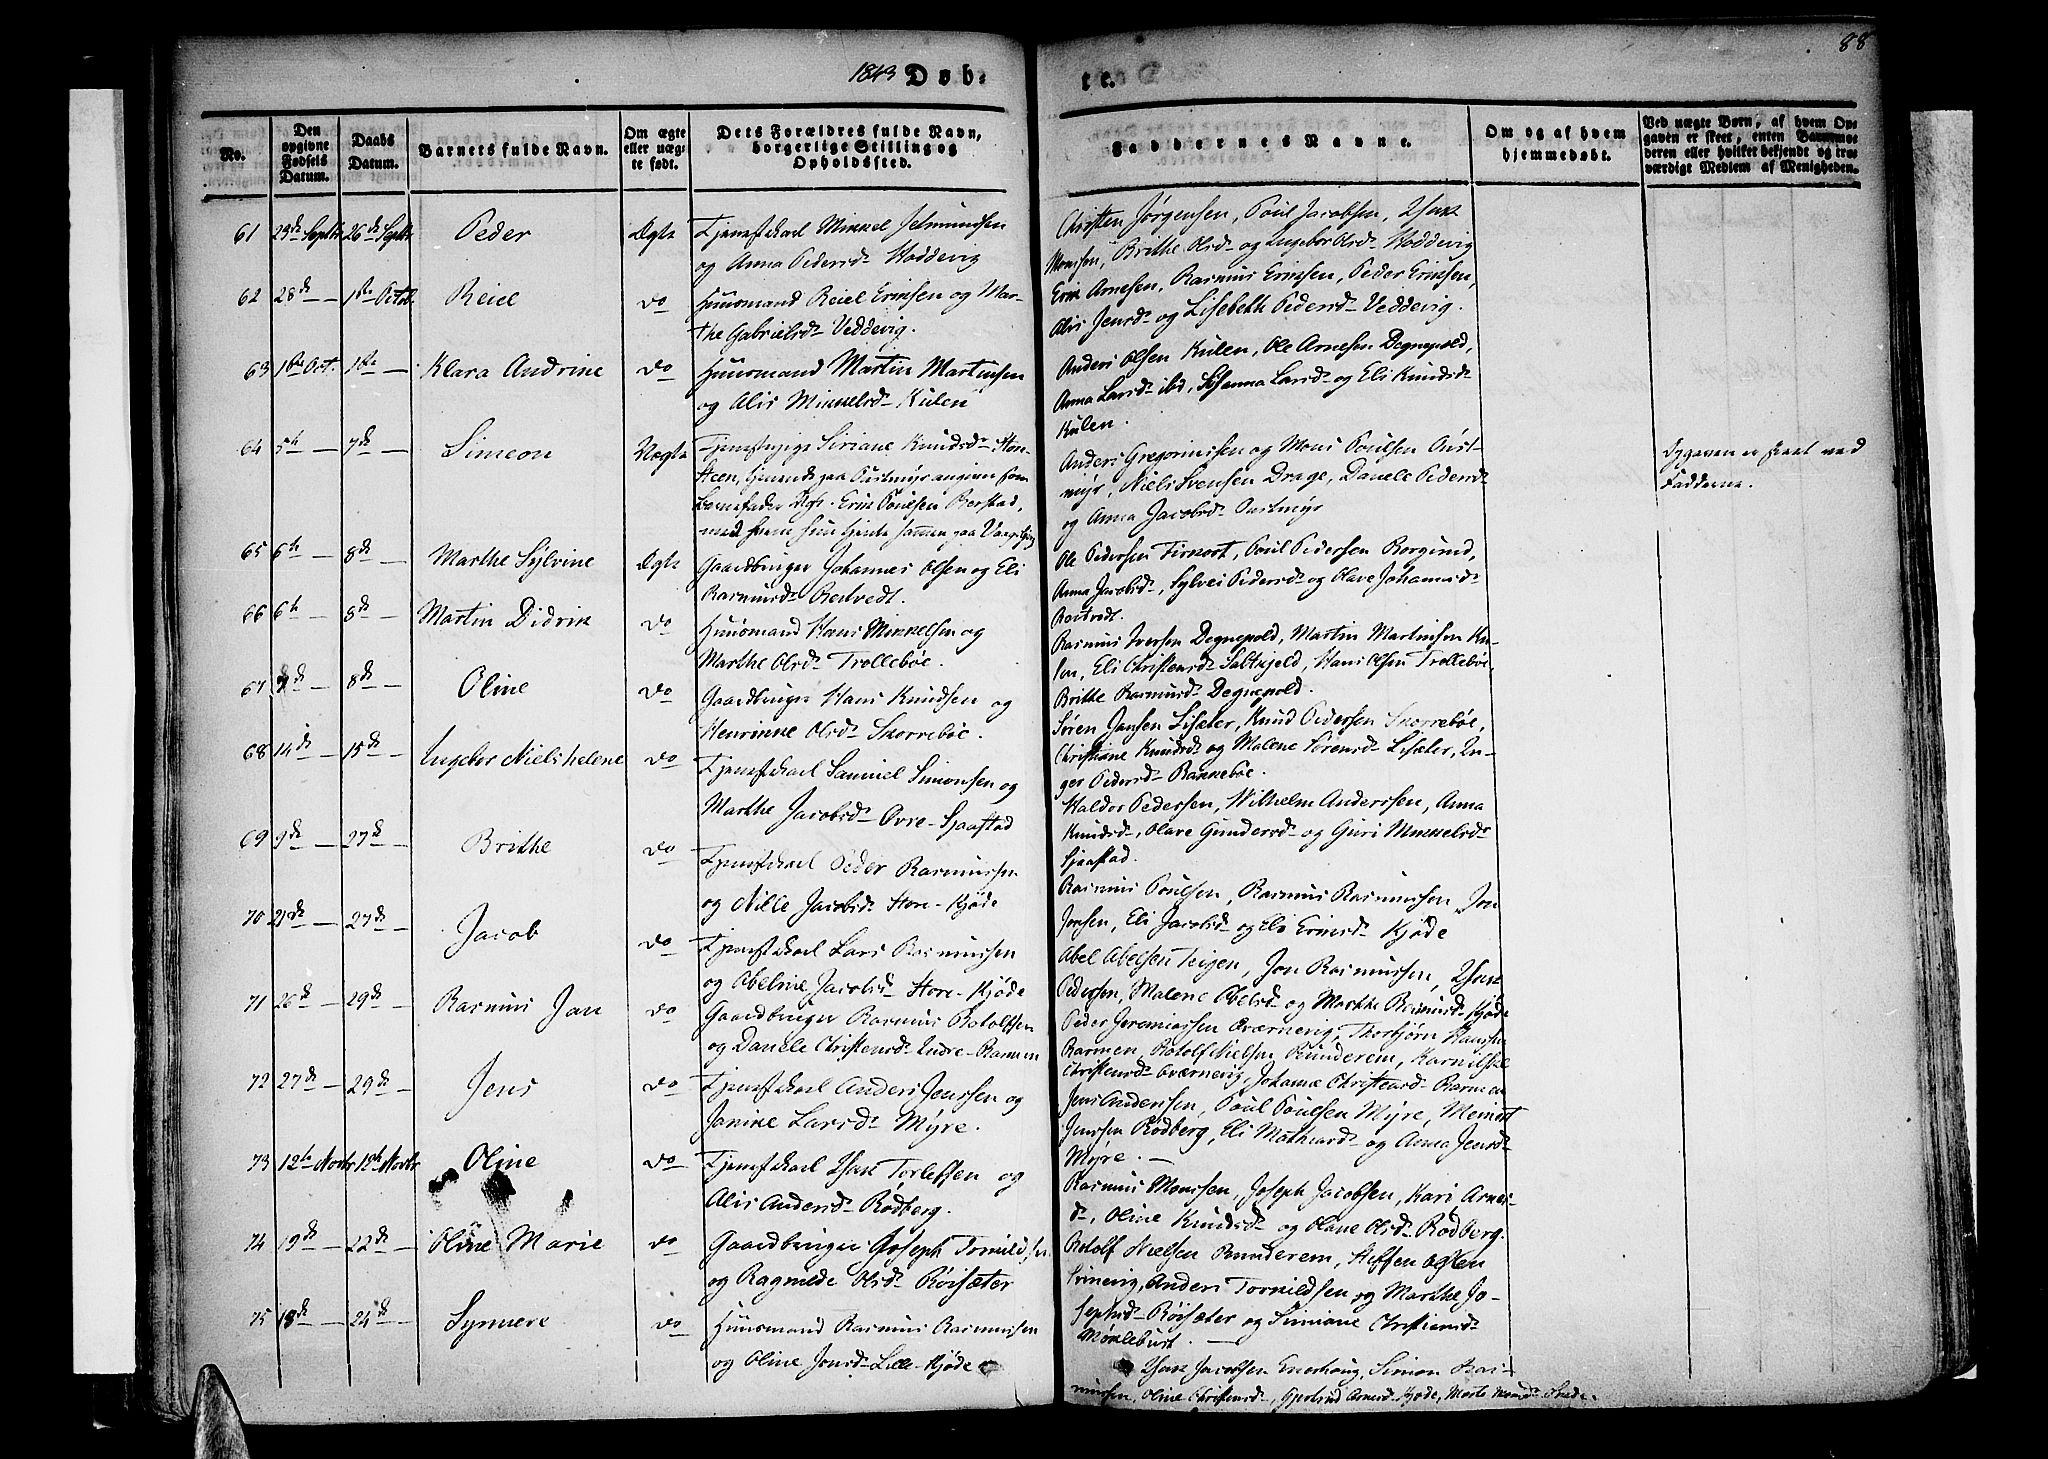 88
1843 Døb-
te.
No.
Den opgivne Fødsels Datum.
Daabs Datum.
Barnets fulde Navn.
Om ægte eller uægte født.
Dets Forældres fulde Navn, borgerlige Stilling og Opholdssted.
Faddernes Navne.
Om og af hvem hjemmedøbt.
Ved uægte Børn, af hvem Opgaven er skeet, enten Barnemoderen eller hvilket bekjendt og troværdigt Medlem af Menigheden.
61 23de Septbr 26de Septbr Peder Ægte Tjenestkarl Mikkel
og Anna Pedersd. Hoddevig
Christen Jørgensen, Poul Jacobsen, Isak
Monssen, Brithe Olsd. og Ingebor Olsd. Hoddevig
62 28de — 1ste Octob. Reiel do Huusmand Reiel Eriksen og Mar-
the Gabrielsd. Veddevig.
Erik Arnesen, Rasmus Eriksen, Peder Eriksen,
Alis Jensd. og Lisebeth Pedersd. Veddevig.
63 1ste Oct. 1ste — Klara Andrine do Huusmand Martin Martinsen
og Alis Mikkelsd. Kulen
Anders Olsen Kulen, Ole Arnesen Degnepold,
Anna Larsd. ibd, Susanna Larsd. og Eli Knudsd.
Kulen.
64 5te — 7de Simeon Uægte Tjenestepige Siriane Knudsd.
tjenende paa Østmyr angiven som
Barnefader Ugk. Erik Poulsen Berstad,
med hvem hun tjente sammen paa
Anders Gregoriussen og Mons Poulsen Øst-
myr, Niels Svensen Drage, Danele Pedersd.
og Anna Jacobsd. Østmyr
Opgaven er skeet ved
Fadderne.
65 6te — 8de — Marthe Sylvine Ægte Gaardbruger Johannes Olsen og Eli
Rasmusd. Refvedt.
Ole Pedersen, Poul Pedersen Borgund,
Anna Jacobsd., Sylvei Pedersd. og Olave Johannesd.
66 6te — 8de — Martin Didrik do Huusmand Hans Mikkelsen og
Marthe Olsd. Trollebøe.
Rasmus Iversen Degnepold, Martin Martinsen Ku-
len, Eli Christensd. Saltkjeld, Hans Olsen Trollebøe,
Brithe Rasmusd. Degnepold.
67 7de — 8de — Oline do Gaardbruger Hans Knudsen og
Henrikke Olsd. Skorrebøe.
Søren Jansen Lisæter, Knud Pedersen Skorrebøe,
Christiane Knudsd. og Malene Sørensd. Lisæter, In-
ger Pedersd. Bakkebøe.
68 14de — 15de — Ingebor Nielshelene do Tjenestkarl Samuel Simonsen og
Marthe Jacobsd. Øvre-Sjaastad
Haldor Pedersen, Wilhelm Anderssen, Anna
Knudsd., Olave Gundersd. og Guri Mikkelsd.
Sjaastad.
69 9de — 27de — Brithe do Tjenestkarl Peder Rasmussen
og Nille Jacobsd. Store-Kjøde
Rasmus Poulsen, Rasmus Rasmussen, Jon
Jonsen, Eli Jacobsd. og Eli Eriksd. Kjøde
70 21de — 27de — Jacob do Tjenestkarl Lars Rasmussen
og Abeline Jacobsd. Store-Kjøde
Abel Abelsen Teigen, Jon Rasmussen, Isak
Pedersen, Malene Abelsd. og Marthe Rasmusd. Kjøde
71 26de — 29de — Rasmus Jan do Gaardbruger Rasmus Rotolfsen
og Danele Christensd. Indre-Barmen
Peder Jeremiassen Qværnevig, Thorbjørn Hanssen
Barmen, Rotolf Nielsen Runderem, Karnilske
Christensd. Qværnevig, Johanne Christensd. Barmen
72 27de — 29de — Jens do Tjenestkarl Anders Jenssen og
Janike Larsd. Myre.
Jens Andersen, Poul Poulsen Myre, Meinert
Jenssen Rødberg, Eli Mathiasd. og Anna Jensd.
Myre. —
73 12te Novbr 19de Novbr Oline do Tjenestkarl Isak Torlefsen og
Alis Andersd. Rødberg.
Rasmus Monssen, Joseph Jacobsen, Kari Arnes-
d., Oline Knudsd. og Olave Olsd. Rødberg.
74 19de — 22de — Oline Marie do Gaardbruger Joseph Torkildsen
og Ragnilde Olsd. Røisæter
Rotolf Nielsen Runderem, Steffen Olsen
Anders Torkildsen og Marthe Jo-
sephsd. Røisæter og Simiane Christiansd.
Mørkleburst. —
75 18de — 24de — Synneve do Huusmand Rasmus Rasmussen
og Oline Jonsd. Lille-Kjøde
Isak Jacobsen Enerhoug, Simon Ras-
mussen, Oline Christensd., Gjertrud Arnesd. Kjøde, Marte Monsd.